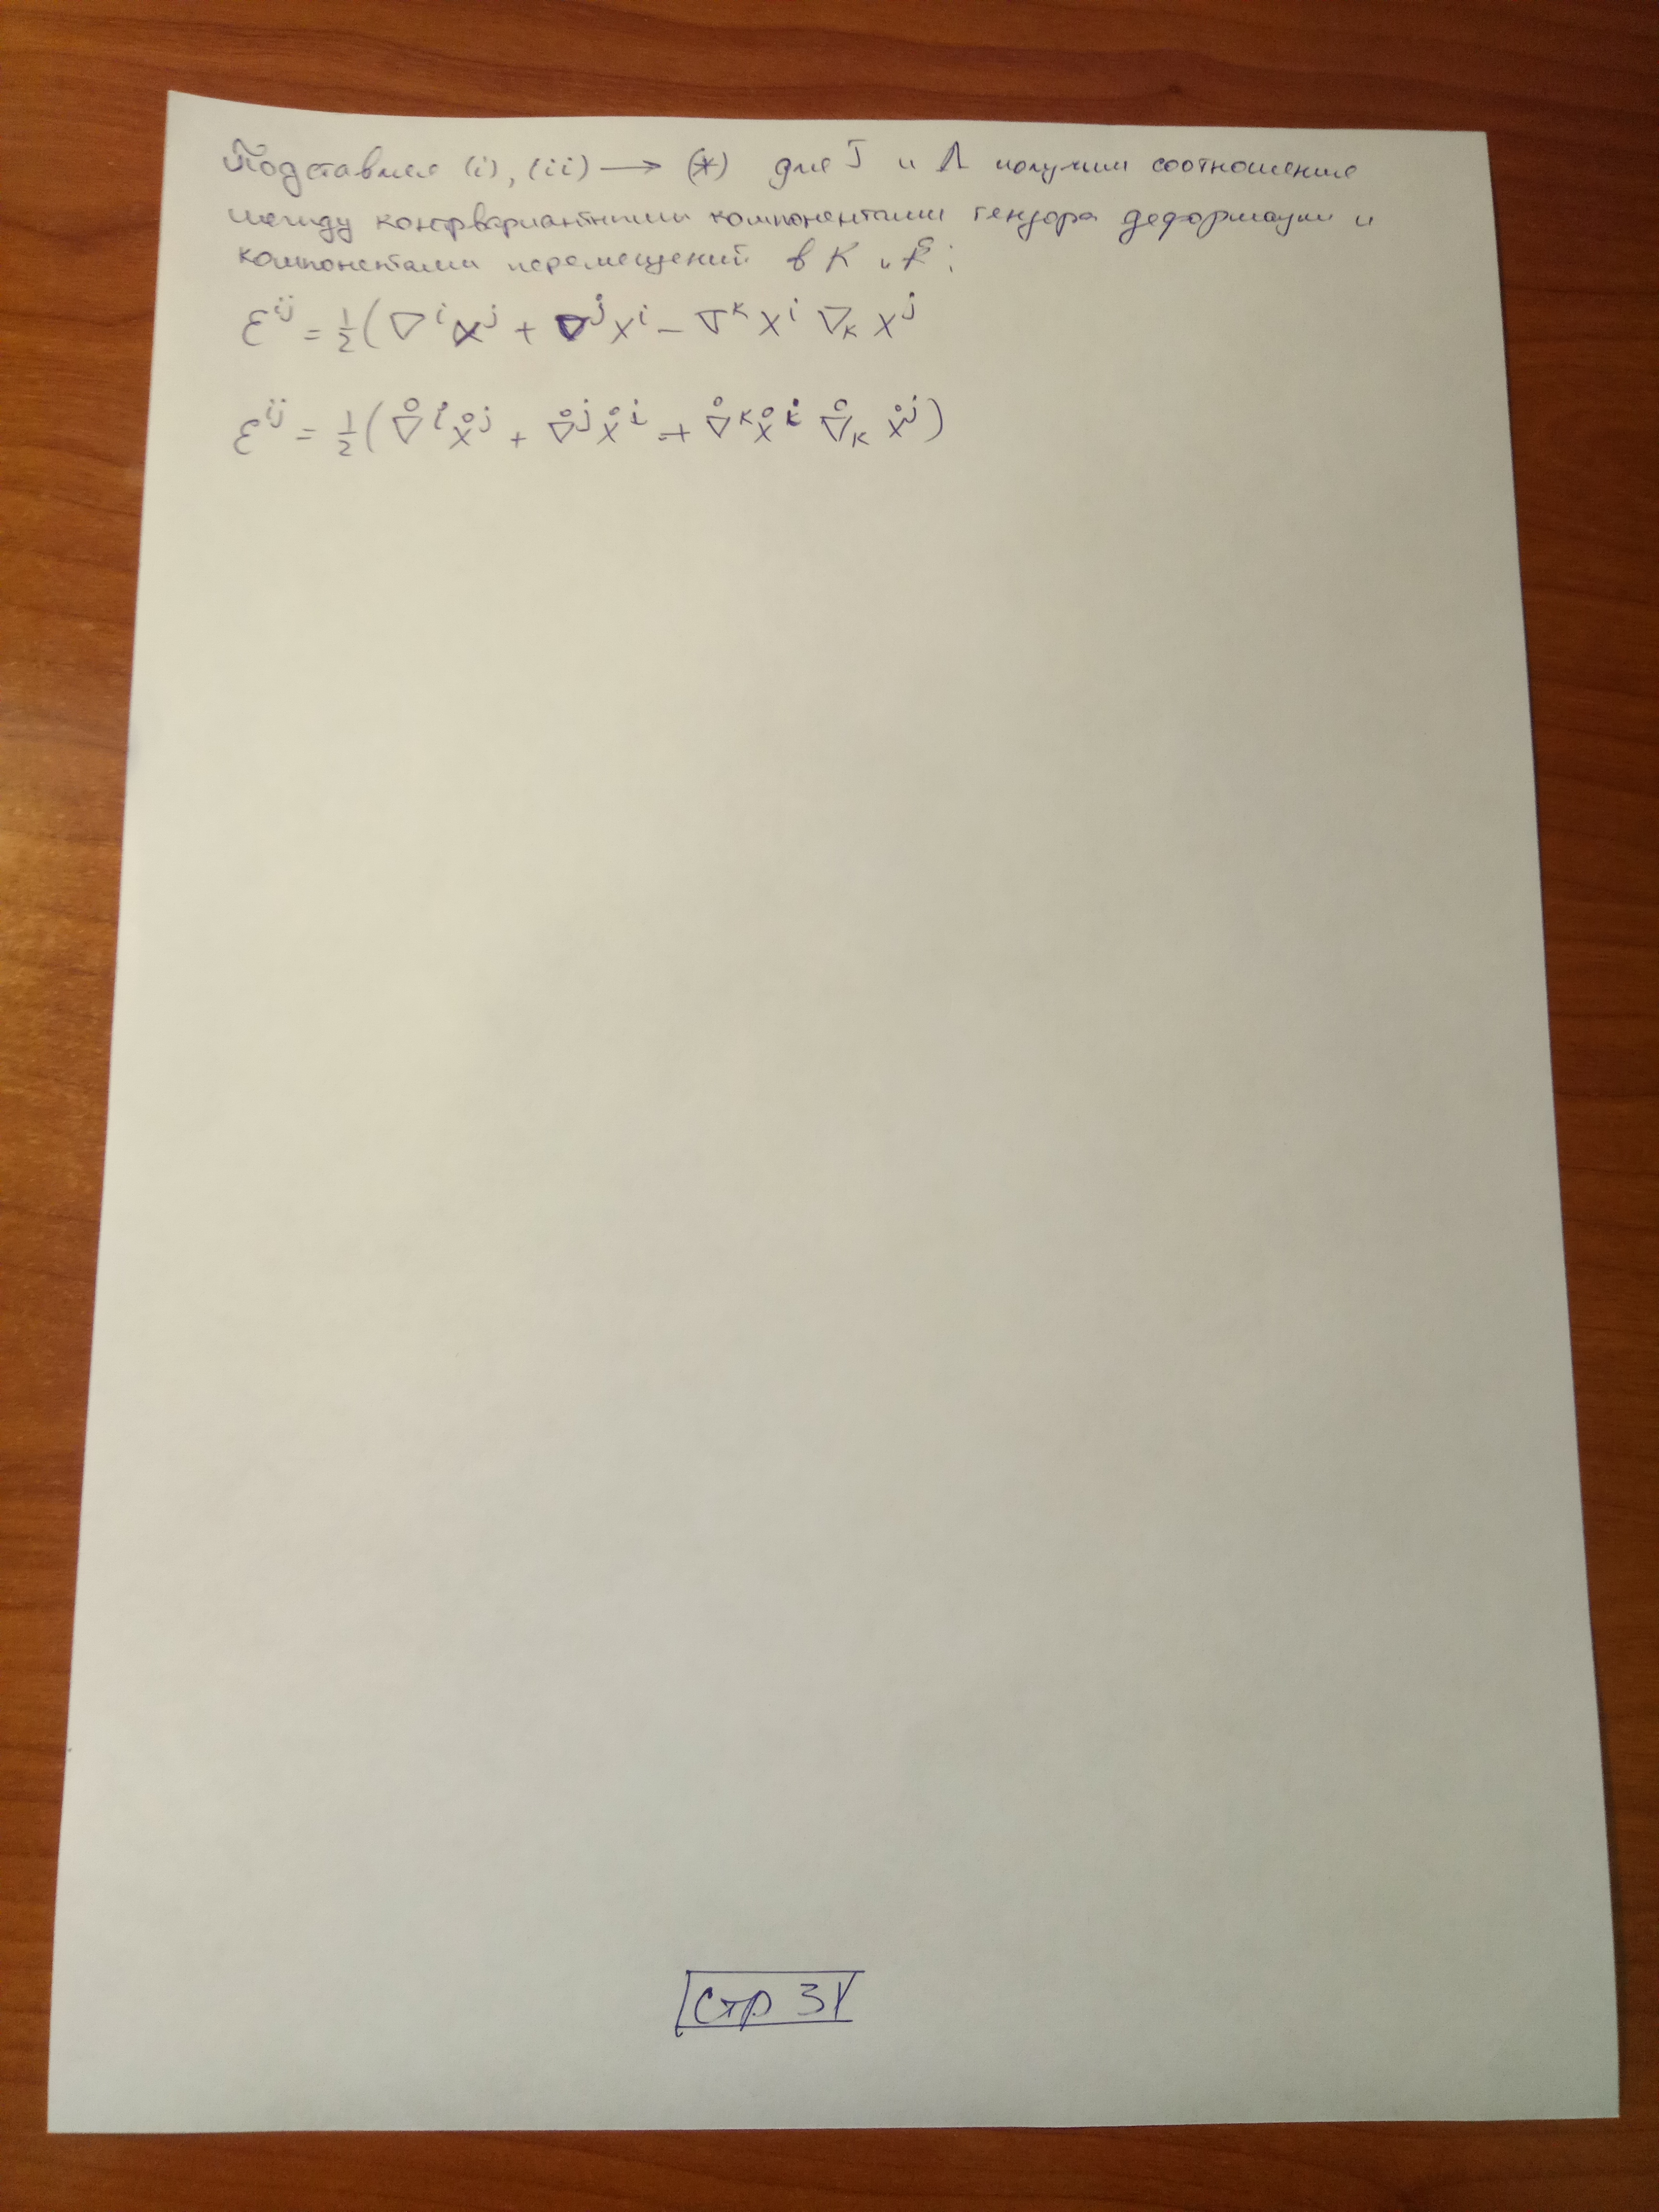 Подставляя (i), (ii) ⟶ (*) для J и Λ получим соотношение
между контрвариантными компонентами тензора деформации и
компонентами перемещений в K и K̊:
ε^{ij} = 1/2(∇^i x^j + ∇^j x^i − ∇^k x^i ∇_k x^j
ε^{ij} = 1/2(∇̊^i x̊^j + ∇̊^j x̊^i + ∇̊^k x̊^i ∇̊_k x̊^j)
Стр 31